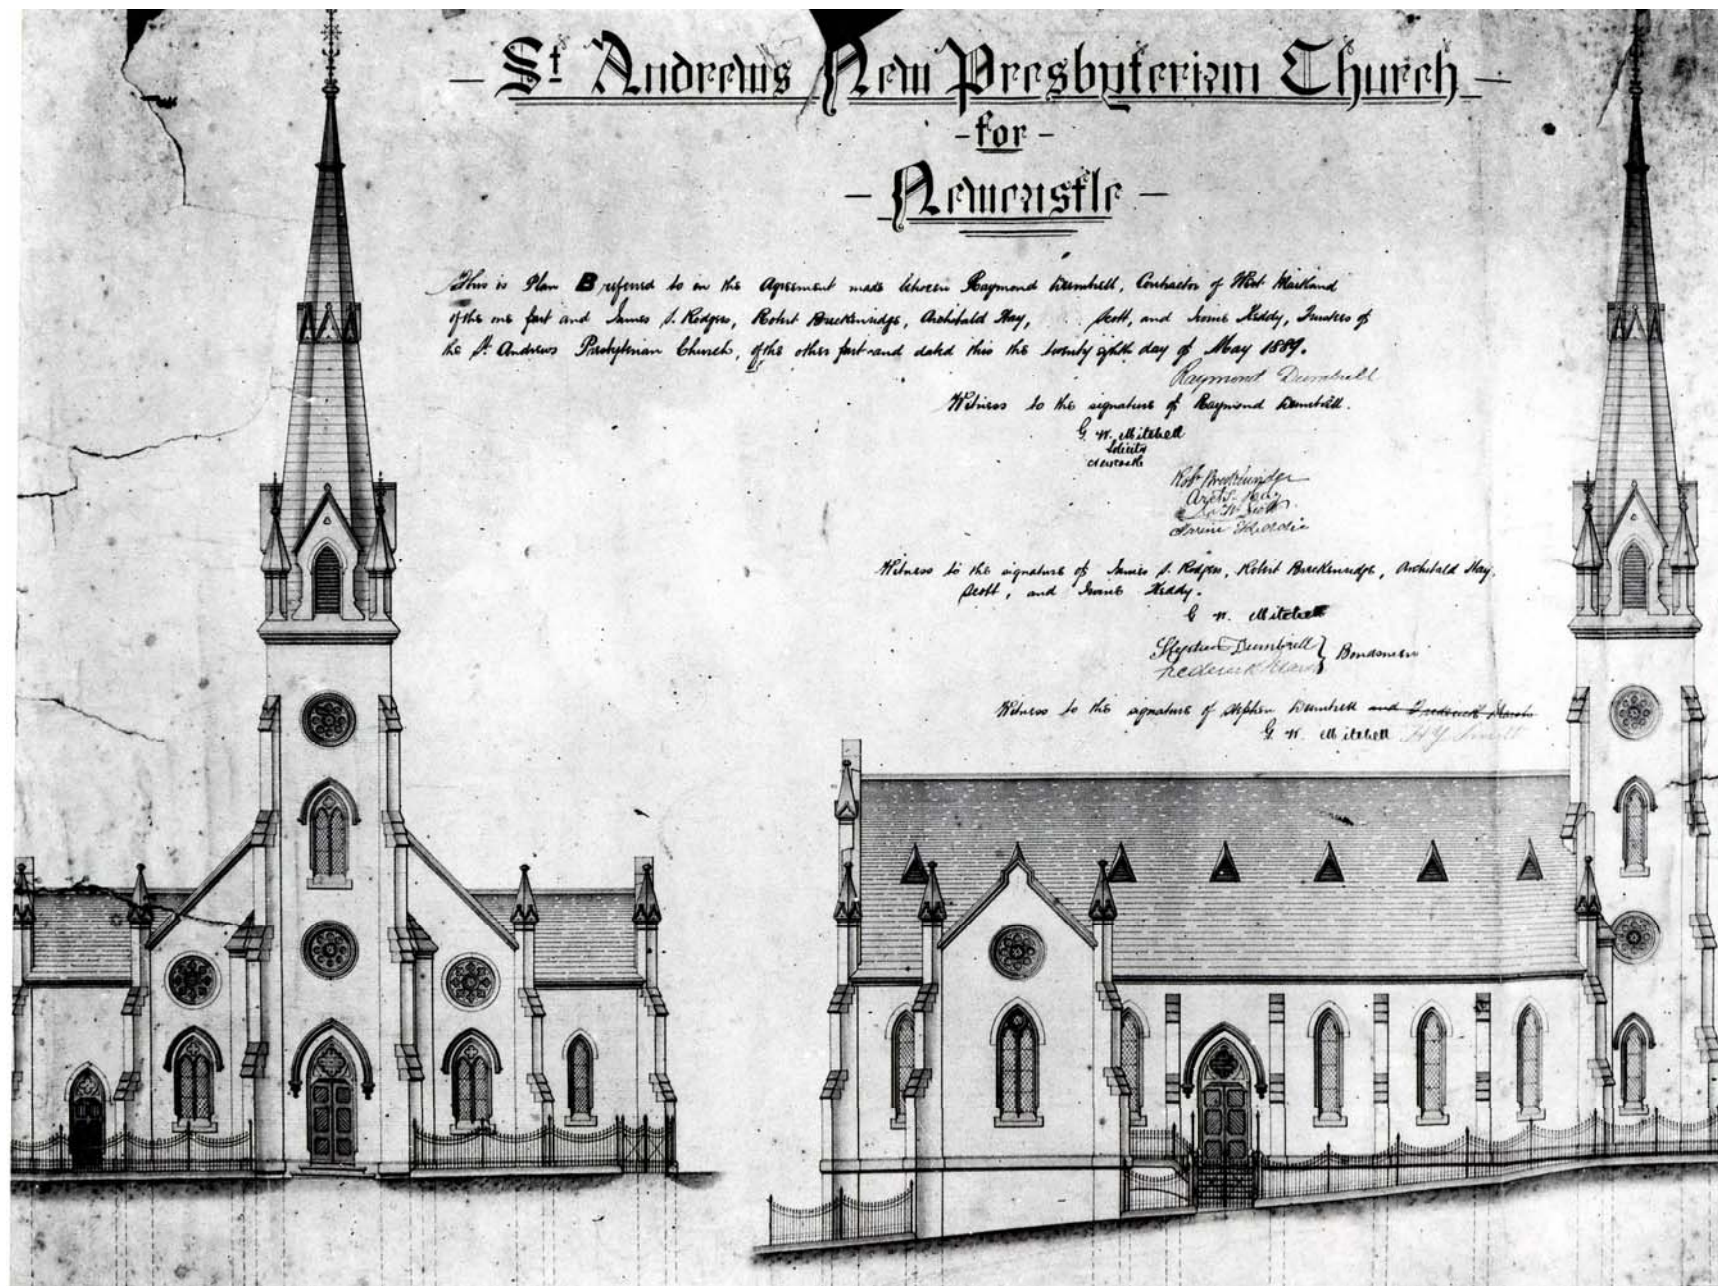 - St Andrews New Presbyterian Church -
- for -
- Newcastle -
This is Plan B referred to in the Agreement made between Raymond Dumbrell, Contractor of West Maitland
of the one part and James S. Rodgers, Robert Breckenridge, Archibald Hay, Scott, and Irvine Keddy, Trustees of
the St. Andrews Presbyterian Church, of the other part and dated this the twenty eighth day of May 1889.
Raymond Dumbrell
Witness to the signature of Raymond Dumbrell.
G. W. Mitchell
Solicitor
Newcastle
Robt Breckenridge
Archd. Hay
W Scott
Witness to the signature of James S. Rodgers, Robert Breckenridge, Archibald Hay,
Scott, and Irvine Keddy.
G W. Mitchell
Stephen Dumbrell } Bondsmen
Frederick
Witness to the signature of Stephen Dumbrell and Frederick
G. W. Mitchell